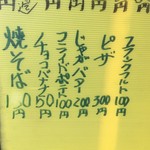 フランクフルト 100円
ピザ 300円
じゃがバター 200円
フライドポテト 100円
チョコバナナ 50円
焼そば